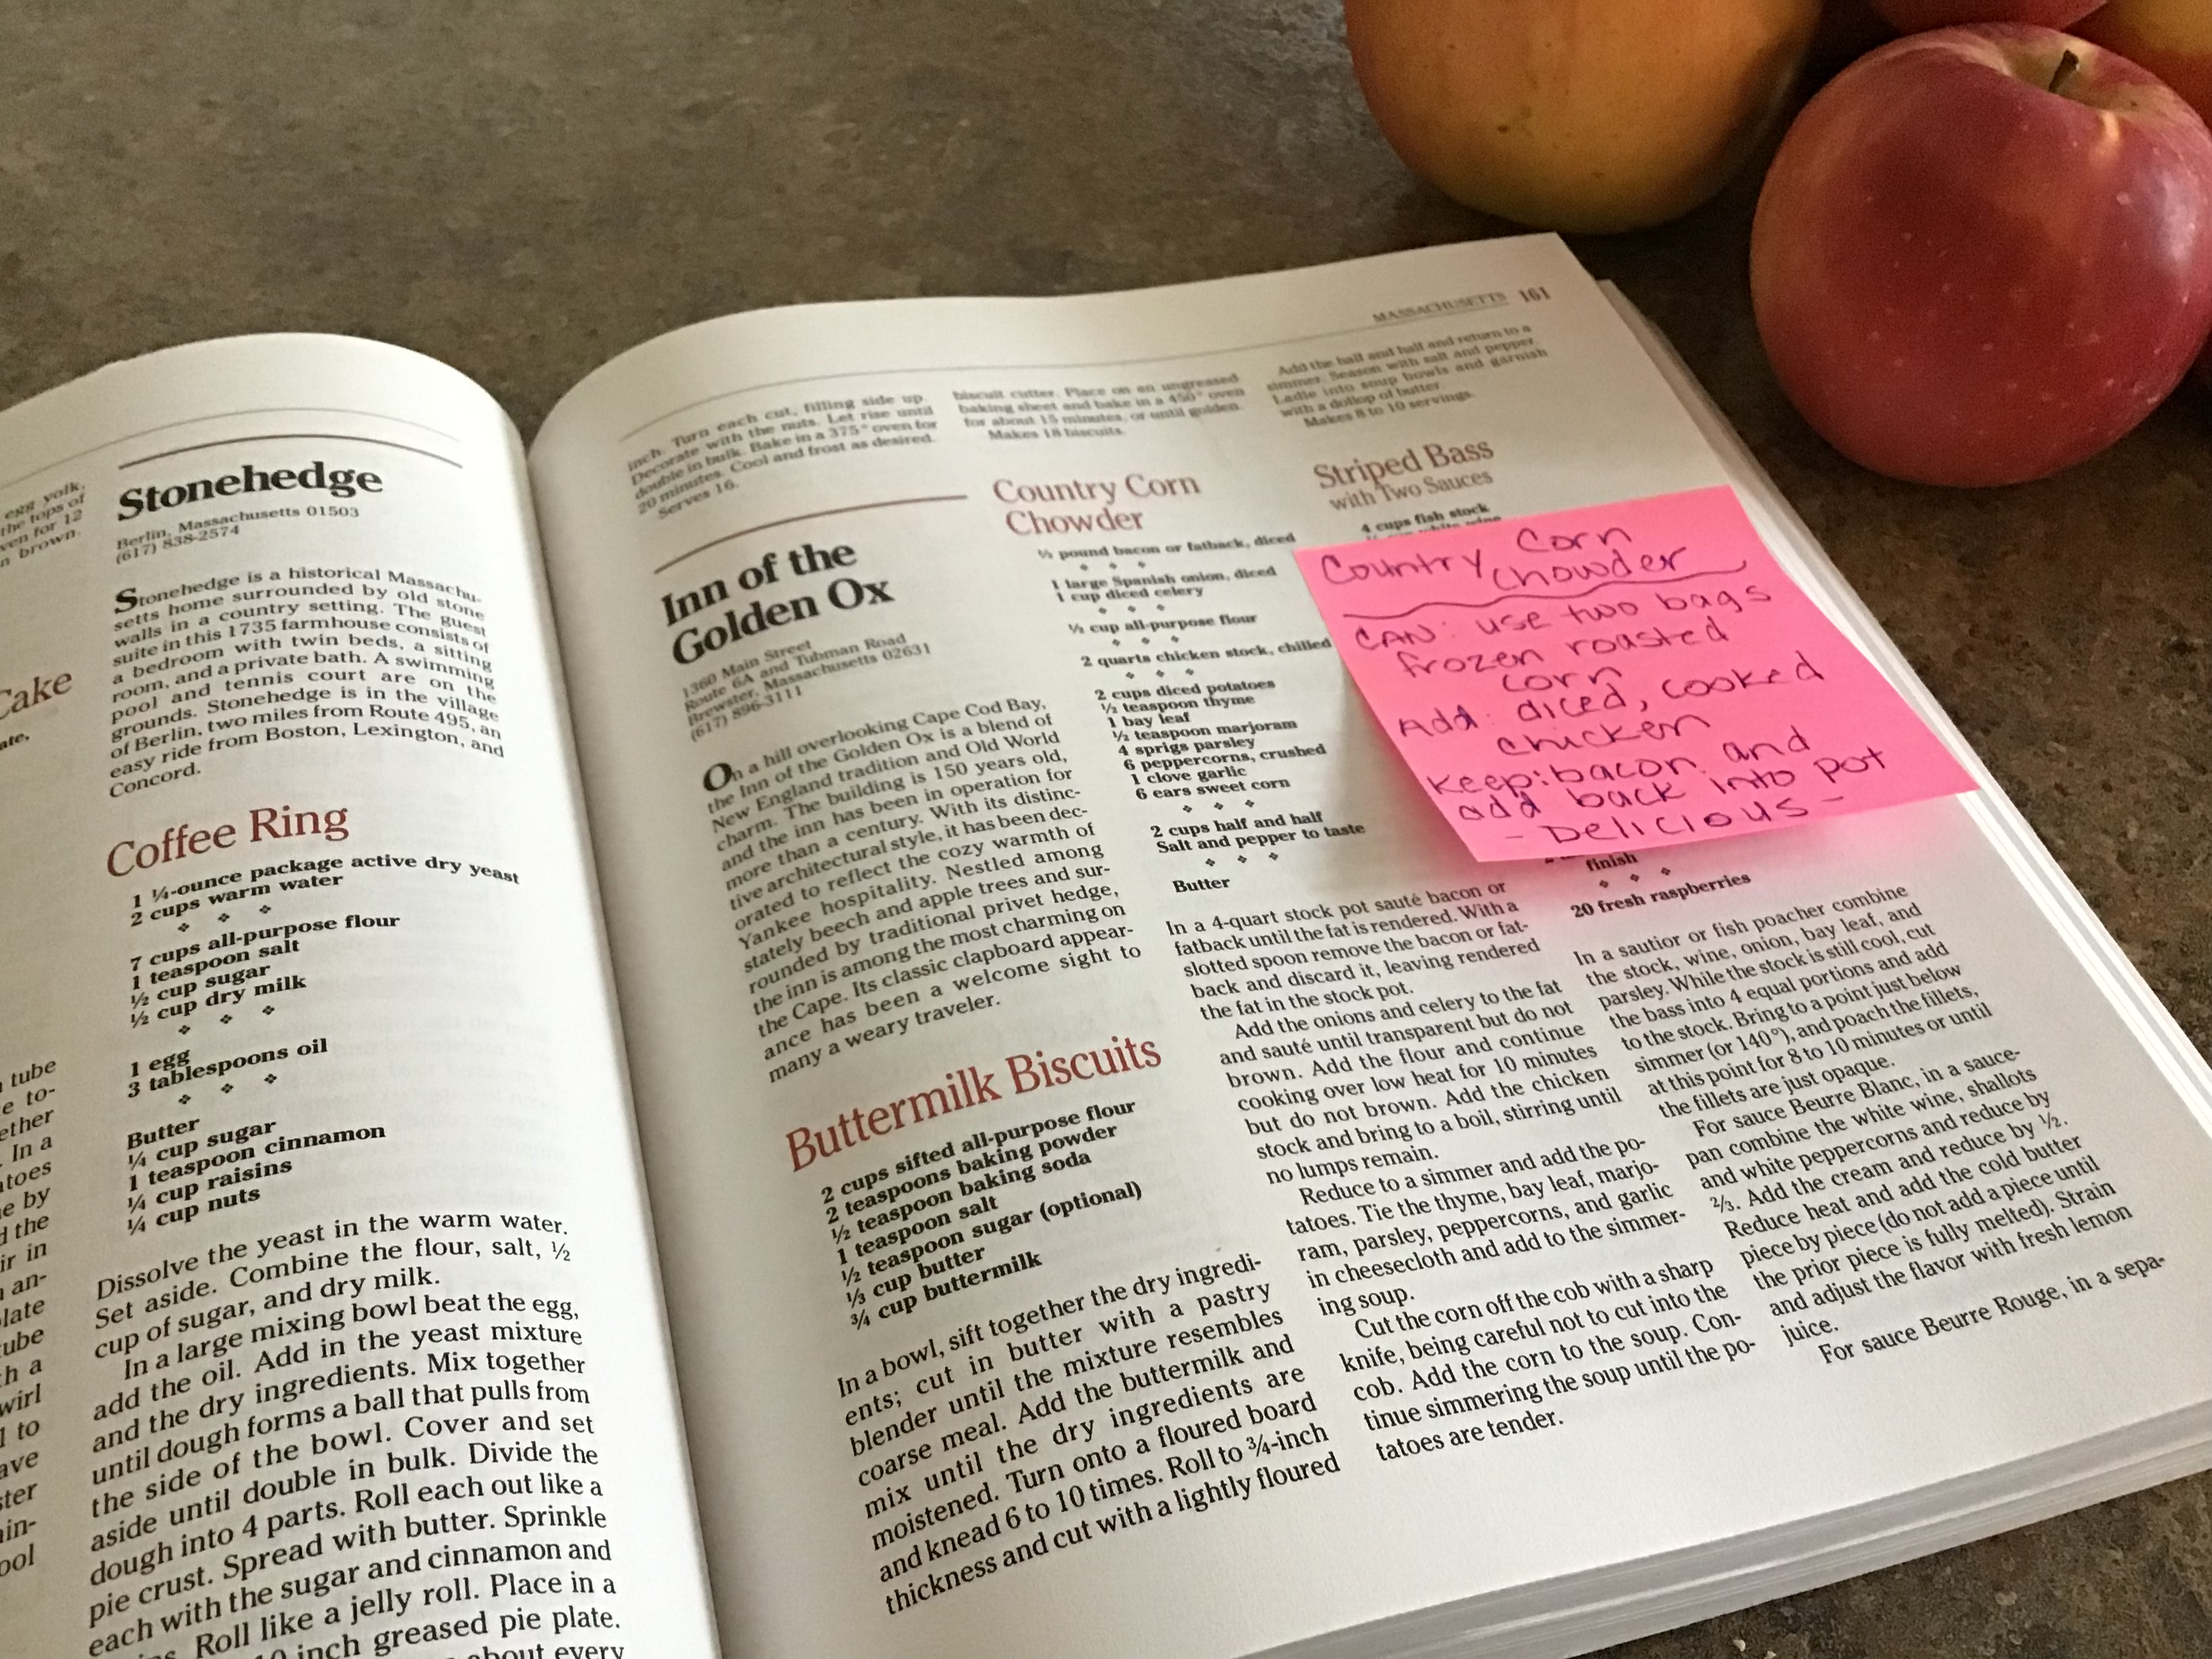 egg yolk,
the tops of
ven for 12
n brown.
Cake
ate,
tube
e to-
ether
. In a
atoes
e by
d the
ir in
an-
plate
tube
h a
wirl
l to
ave
ster
in-
ool
Stonehedge
Berlin, Massachusetts 01503
(617) 838-2574
Stonehedge is a historical Massachu-
setts home surrounded by old stone
walls in a country setting. The guest
suite in this 1735 farmhouse consists of
a bedroom with twin beds, a sitting
room, and a private bath. A swimming
pool and tennis court are on the
grounds. Stonehedge is in the village
of Berlin, two miles from Route 495, an
easy ride from Boston, Lexington, and
Concord.
Coffee Ring
1 ¼-ounce package active dry yeast
2 cups warm water
7 cups all-purpose flour
1 teaspoon salt
½ cup sugar
½ cup dry milk
1 egg
3 tablespoons oil
Butter
¼ cup sugar
1 teaspoon cinnamon
¼ cup raisins
¼ cup nuts
Dissolve the yeast in the warm water.
Set aside. Combine the flour, salt, ½
cup of sugar, and dry milk.
In a large mixing bowl beat the egg,
add the oil. Add in the yeast mixture
and the dry ingredients. Mix together
until dough forms a ball that pulls from
the side of the bowl. Cover and set
aside until double in bulk. Divide the
dough into 4 parts. Roll each out like a
pie crust. Spread with butter. Sprinkle
each with the sugar and cinnamon and
Roll like a jelly roll. Place in a
inch greased pie plate.
about every
MASSACHUSETTS 161
inch. Turn each cut, filling side up.
Decorate with the nuts. Let rise until
double in bulk. Bake in a 375° oven for
20 minutes. Cool and frost as desired.
Serves 16.
Inn of the
Golden Ox
1360 Main Street
Route 6A and Tubman Road
Brewster, Massachusetts 02631
(617) 896-3111
On a hill overlooking Cape Cod Bay,
the Inn of the Golden Ox is a blend of
New England tradition and Old World
charm. The building is 150 years old,
and the inn has been in operation for
more than a century. With its distinc-
tive architectural style, it has been dec-
orated to reflect the cozy warmth of
Yankee hospitality. Nestled among
stately beech and apple trees and sur-
rounded by traditional privet hedge,
the inn is among the most charming on
the Cape. Its classic clapboard appear-
ance has been a welcome sight to
many a weary traveler.
Buttermilk Biscuits
2 cups sifted all-purpose flour
2 teaspoons baking powder
½ teaspoon baking soda
1 teaspoon salt
½ teaspoon sugar (optional)
⅓ cup butter
¾ cup buttermilk
In a bowl, sift together the dry ingredi-
ents; cut in butter with a pastry
blender until the mixture resembles
coarse meal. Add the buttermilk and
mix until the dry ingredients are
moistened. Turn onto a floured board
and knead 6 to 10 times. Roll to ¾-inch
thickness and cut with a lightly floured
biscuit cutter. Place on an ungreased
baking sheet and bake in a 450° oven
for about 15 minutes, or until golden.
Makes 18 biscuits.
Country Corn
Chowder
½ pound bacon or fatback, diced
1 large Spanish onion, diced
1 cup diced celery
½ cup all-purpose flour
2 quarts chicken stock, chilled
2 cups diced potatoes
½ teaspoon thyme
1 bay leaf
½ teaspoon marjoram
4 sprigs parsley
6 peppercorns, crushed
1 clove garlic
6 ears sweet corn
2 cups half and half
Salt and pepper to taste
Butter
In a 4-quart stock pot sauté bacon or
fatback until the fat is rendered. With a
slotted spoon remove the bacon or fat-
back and discard it, leaving rendered
the fat in the stock pot.
Add the onions and celery to the fat
and sauté until transparent but do not
brown. Add the flour and continue
cooking over low heat for 10 minutes
but do not brown. Add the chicken
stock and bring to a boil, stirring until
no lumps remain.
Reduce to a simmer and add the po-
tatoes. Tie the thyme, bay leaf, marjo-
ram, parsley, peppercorns, and garlic
in cheesecloth and add to the simmer-
ing soup.
Cut the corn off the cob with a sharp
knife, being careful not to cut into the
cob. Add the corn to the soup. Con-
tinue simmering the soup until the po-
tatoes are tender.
Add the half and half and return to a
simmer. Season with salt and pepper.
Ladle into soup bowls and garnish
with a dollop of butter.
Makes 8 to 10 servings.
Striped Bass
with Two Sauces
4 cups fish stock
Country Corn
Chowder
CAN: use two bags
frozen roasted
corn
Add: diced, cooked
chicken
Keep: bacon and
add back into pot
- Delicious -
finish
20 fresh raspberries
In a sautior or fish poacher combine
the stock, wine, onion, bay leaf, and
parsley. While the stock is still cool, cut
the bass into 4 equal portions and add
to the stock. Bring to a point just below
simmer (or 140°), and poach the fillets,
at this point for 8 to 10 minutes or until
the fillets are just opaque.
For sauce Beurre Blanc, in a sauce-
pan combine the white wine, shallots
and white peppercorns and reduce by
⅔. Add the cream and reduce by ½.
Reduce heat and add the cold butter
piece by piece (do not add a piece until
the prior piece is fully melted). Strain
and adjust the flavor with fresh lemon
juice.
For sauce Beurre Rouge, in a sepa-